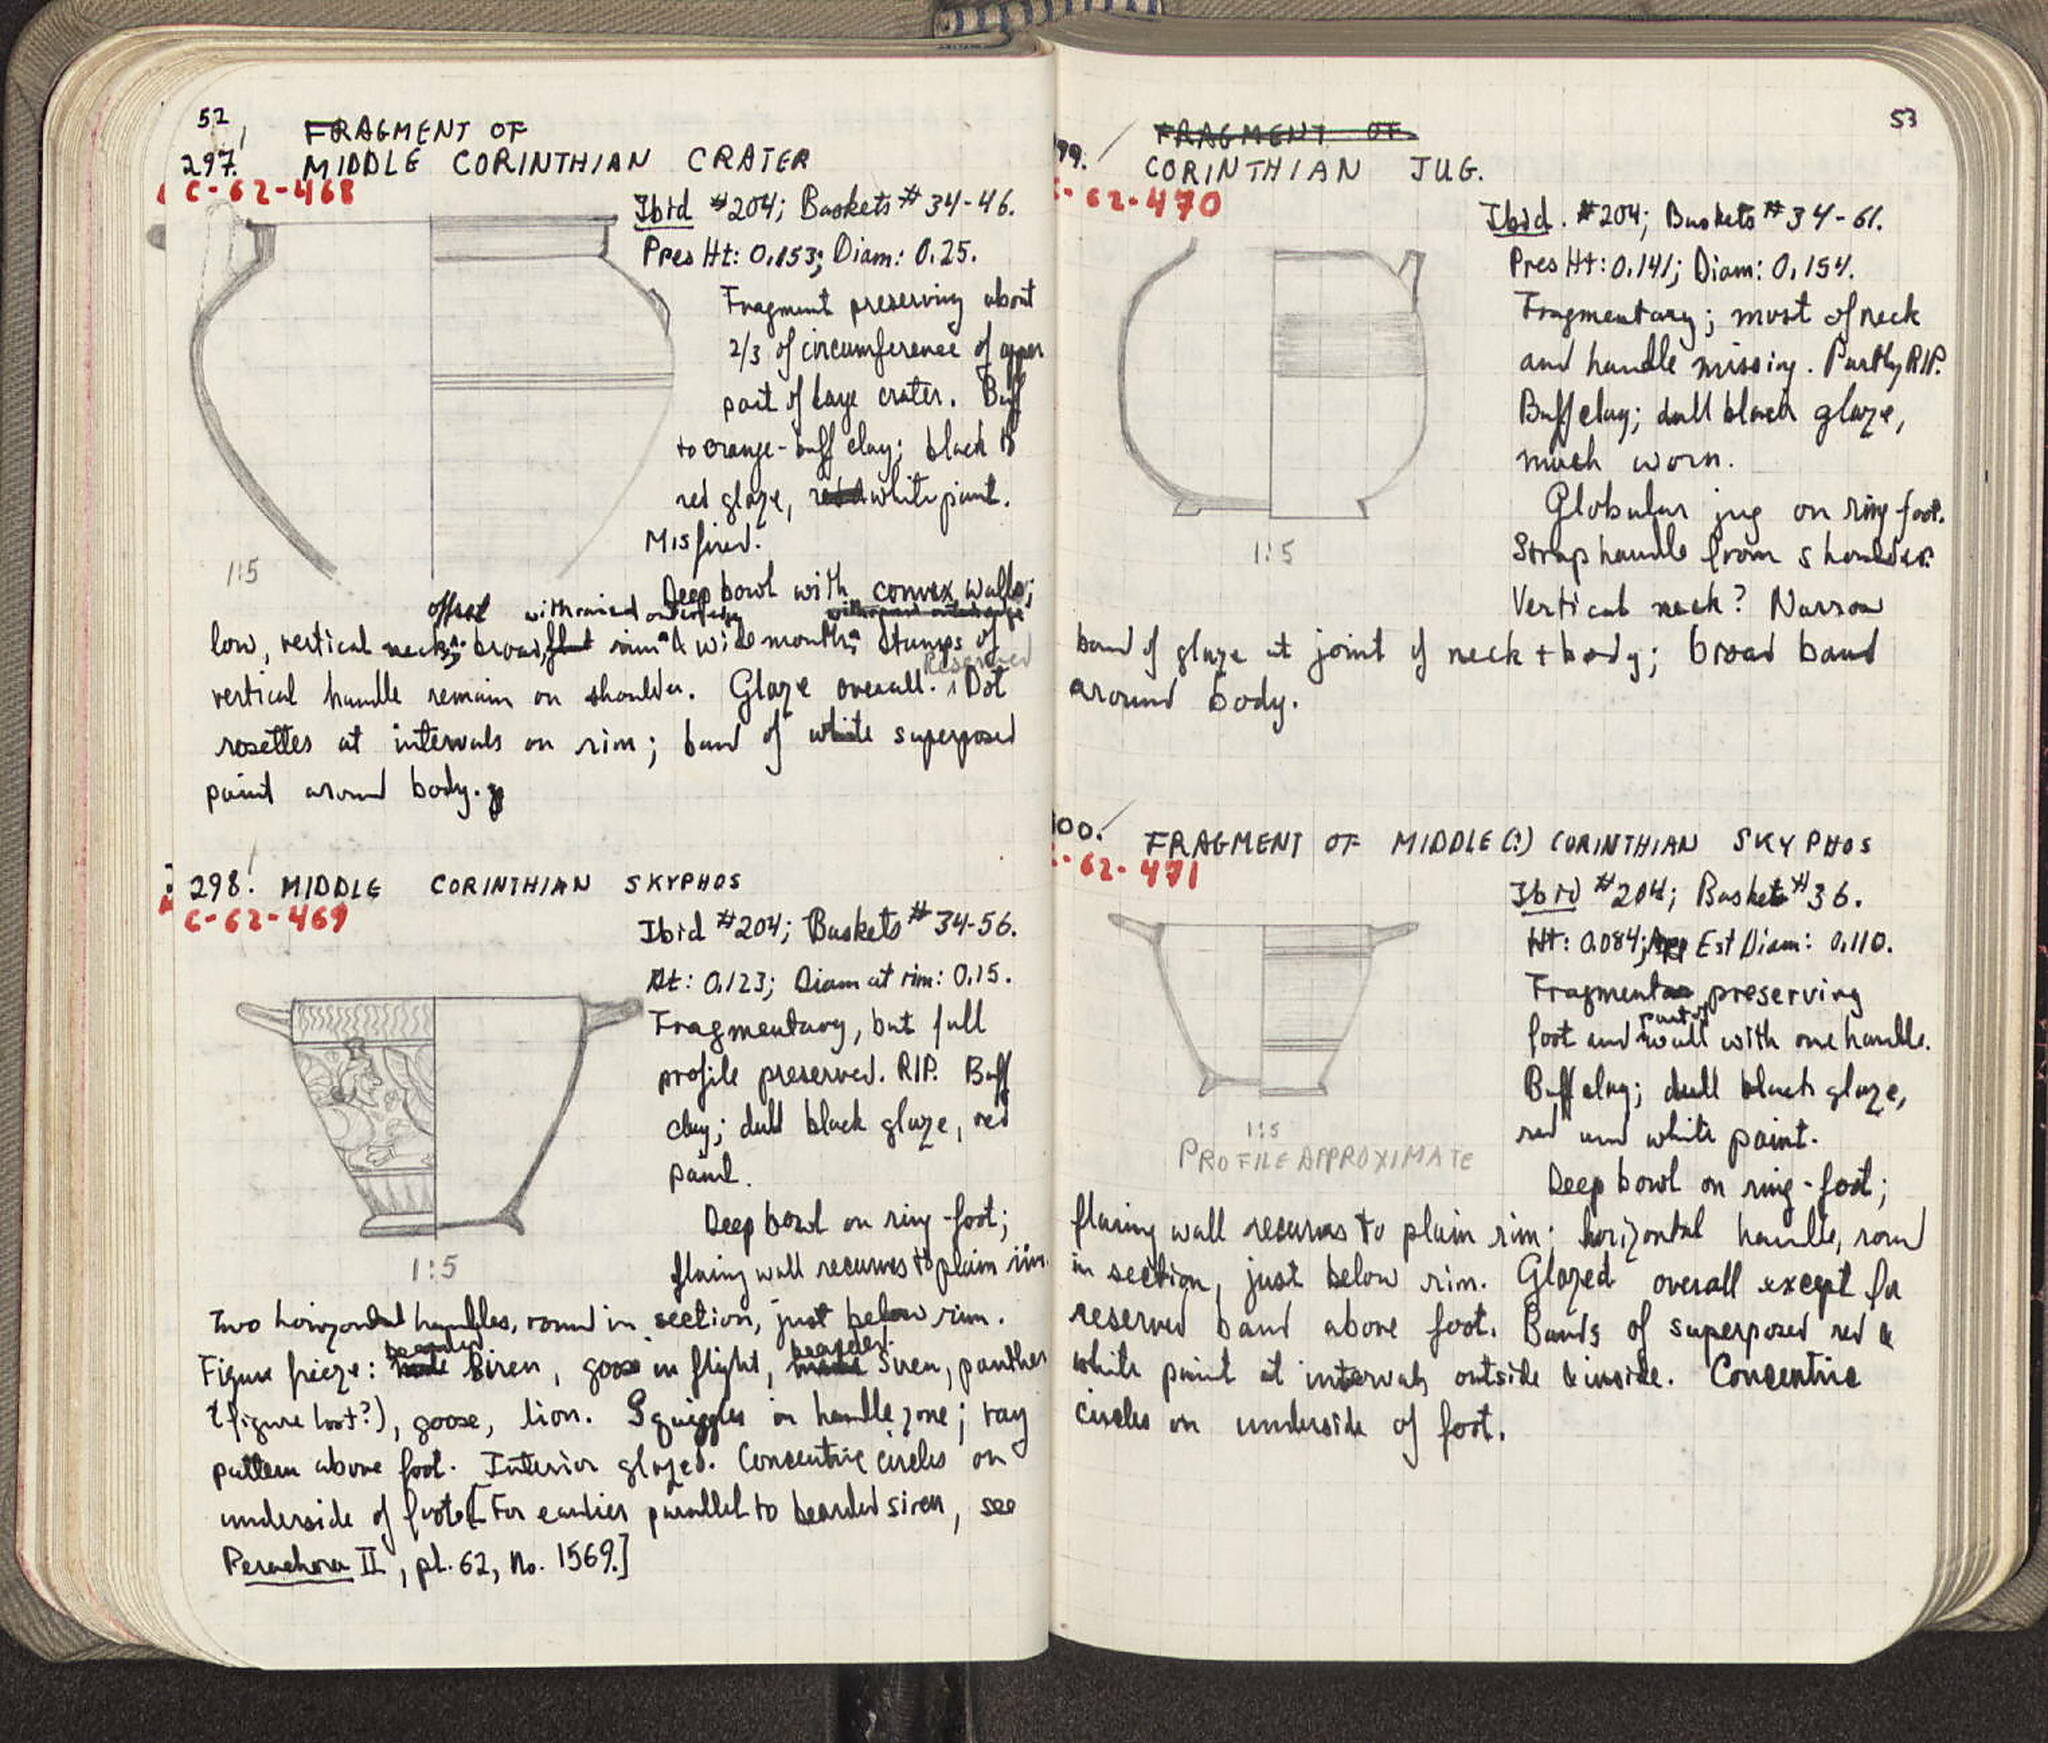 52
FRAGMENT OF
297. MIDDLE CORINTHIAN CRATER
C-62-468
Ibid #204; Baskets #34-46.
Pres Ht: 0.153; Diam: 0.25.
Fragment preserving about
2/3 of circumference of upper
part of large crater. Buff
to orange-buff clay; black to
red glaze, white paint.
Misfired.
Deep bowl with convex walls;
offset with raised outer edge
low, vertical neck; broad, flat rim & wide mouth; stumps of
Reserved
vertical handle remain on shoulder. Glaze overall. Dot
rosettes at intervals on rim; band of white superposed
paint around body.
1:5
298. MIDDLE CORINTHIAN SKYPHOS
C-62-469
Ibid #204; Baskets #34-56.
Ht: 0.123; Diam at rim: 0.15.
Fragmentary, but full
profile preserved. RIP. Buff
clay; dull black glaze, red
paint.
Deep bowl on ring-foot;
flaring wall recurves to plain rim.
1:5
Two horizontal handles, round in section, just below rim.
bearded bearded
Figure frieze: Siren, goose in flight, Siren, panther
(figure lost?), goose, lion. Squiggles in handle zone; ray
pattern above foot. Interior glazed. Concentric circles on
underside of foot. [For earlier parallel to bearded siren, see
Perachora II, pl. 62, no. 1569.]
53
99. FRAGMENT OF
CORINTHIAN JUG.
-62-470
Ibid. #204; Baskets #34-61.
Pres Ht: 0.141; Diam: 0.154.
Fragmentary; most of neck
and handle missing. Partly RIP.
Buff clay; dull black glaze,
much worn.
Globular jug on ring-foot.
Strap handle from shoulder.
Vertical neck? Narrow
band of glaze at joint of neck + body; broad band
around body.
1:5
00. FRAGMENT OF MIDDLE(?) CORINTHIAN SKYPHOS
-62-471
Ibid #204; Basket #36.
Ht: 0.084; Est Diam: 0.110.
Fragment preserving
part of
foot and wall with one handle.
Buff clay; dull black glaze,
red and white paint.
Deep bowl on ring-foot;
1:5
PROFILE APPROXIMATE
flaring wall recurves to plain rim; horizontal handle, round
in section, just below rim. Glazed overall except for
reserved band above foot. Bands of superposed red &
white paint at intervals outside & inside. Concentric
circles on underside of foot.